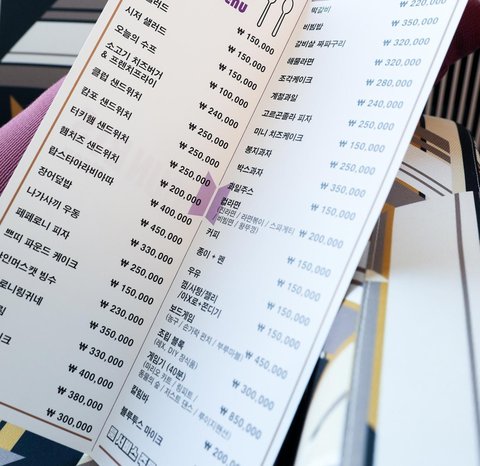 시저 샐러드
오늘의 수프
소고기 치즈버거
& 프렌치프라이
클럽 샌드위치
캄포 샌드위치
터키햄 샌드위치
햄치즈 샌드위치
랍스타아라비아따
장어덮밥
나가사끼 우동
페페로니 피자
쁘띠 파운드 케이크
₩ 150,000
₩ 150,000
₩ 150,000
₩ 100,000
₩ 240,000
₩ 250,000
₩ 250,000
₩ 250,000
₩ 200,000
₩ 400,000
₩ 450,000
₩ 330,000
₩ 250,000
₩ 150,000
₩ 230,000
₩ 350,000
₩ 330,000
₩ 400,000
₩ 380,000
₩ 300,000
떡갈비
비빔밥
갈비살 짜파구리
해물라면
조각케이크
계절과일
고르곤졸라 피자
미니 치즈케이크
봉지과자
박스과자
과일주스
컵라면
커피
종이 + 펜
우유
껌/사탕/젤리
/아X로+쫀디기
보드게임
(농구 / 손가락 펀치 / 부루마블)
조립 블록
(레X, DIY 장식품)
게임기 (40분)
칼림바
블루투스 마이크
₩ 220,000
₩ 350,000
₩ 320,000
₩ 320,000
₩ 280,000
₩ 240,000
₩ 250,000
₩ 250,000
₩ 150,000
₩ 350,000
₩ 150,000
₩ 200,000
₩ 150,000
₩ 150,000
₩ 150,000
₩ 150,000
₩ 450,000
₩ 300,000
₩ 850,000
₩ 200,000